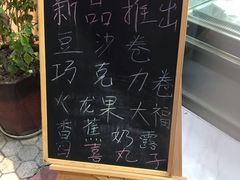 新品推出
豆沙卷
巧克力卷
火龙果大福
香蕉奶露
喜丸子